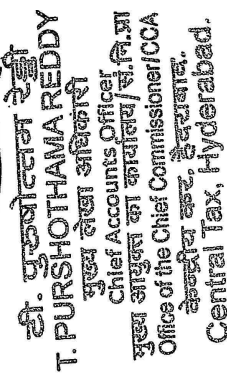 टी. पुरूषोत्तमा रेड्डी
T. PURSHOTHAMA REDDY
मुख्य लेखा अधिकारी
Chief Accounts Officer
मुख्य आयुक्त का कार्यालय/सं.नि.प्रा
Office of the Chief Commissioner/CCA
केन्द्रीय कर, हैदराबाद.
Central Tax, Hyderabad.